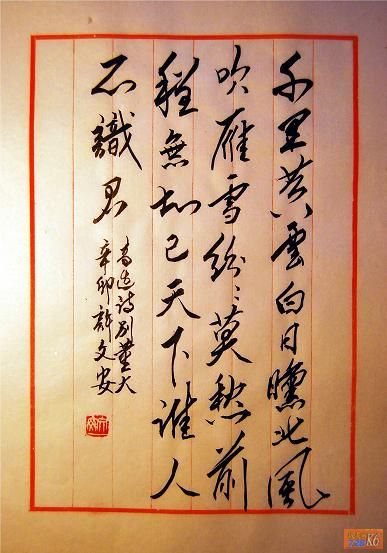 千里黄雲白日曛北風
吹雁雪紛々莫愁前
程無知己天下誰人
不識君
高适诗别董大
辛卯許文安
K6